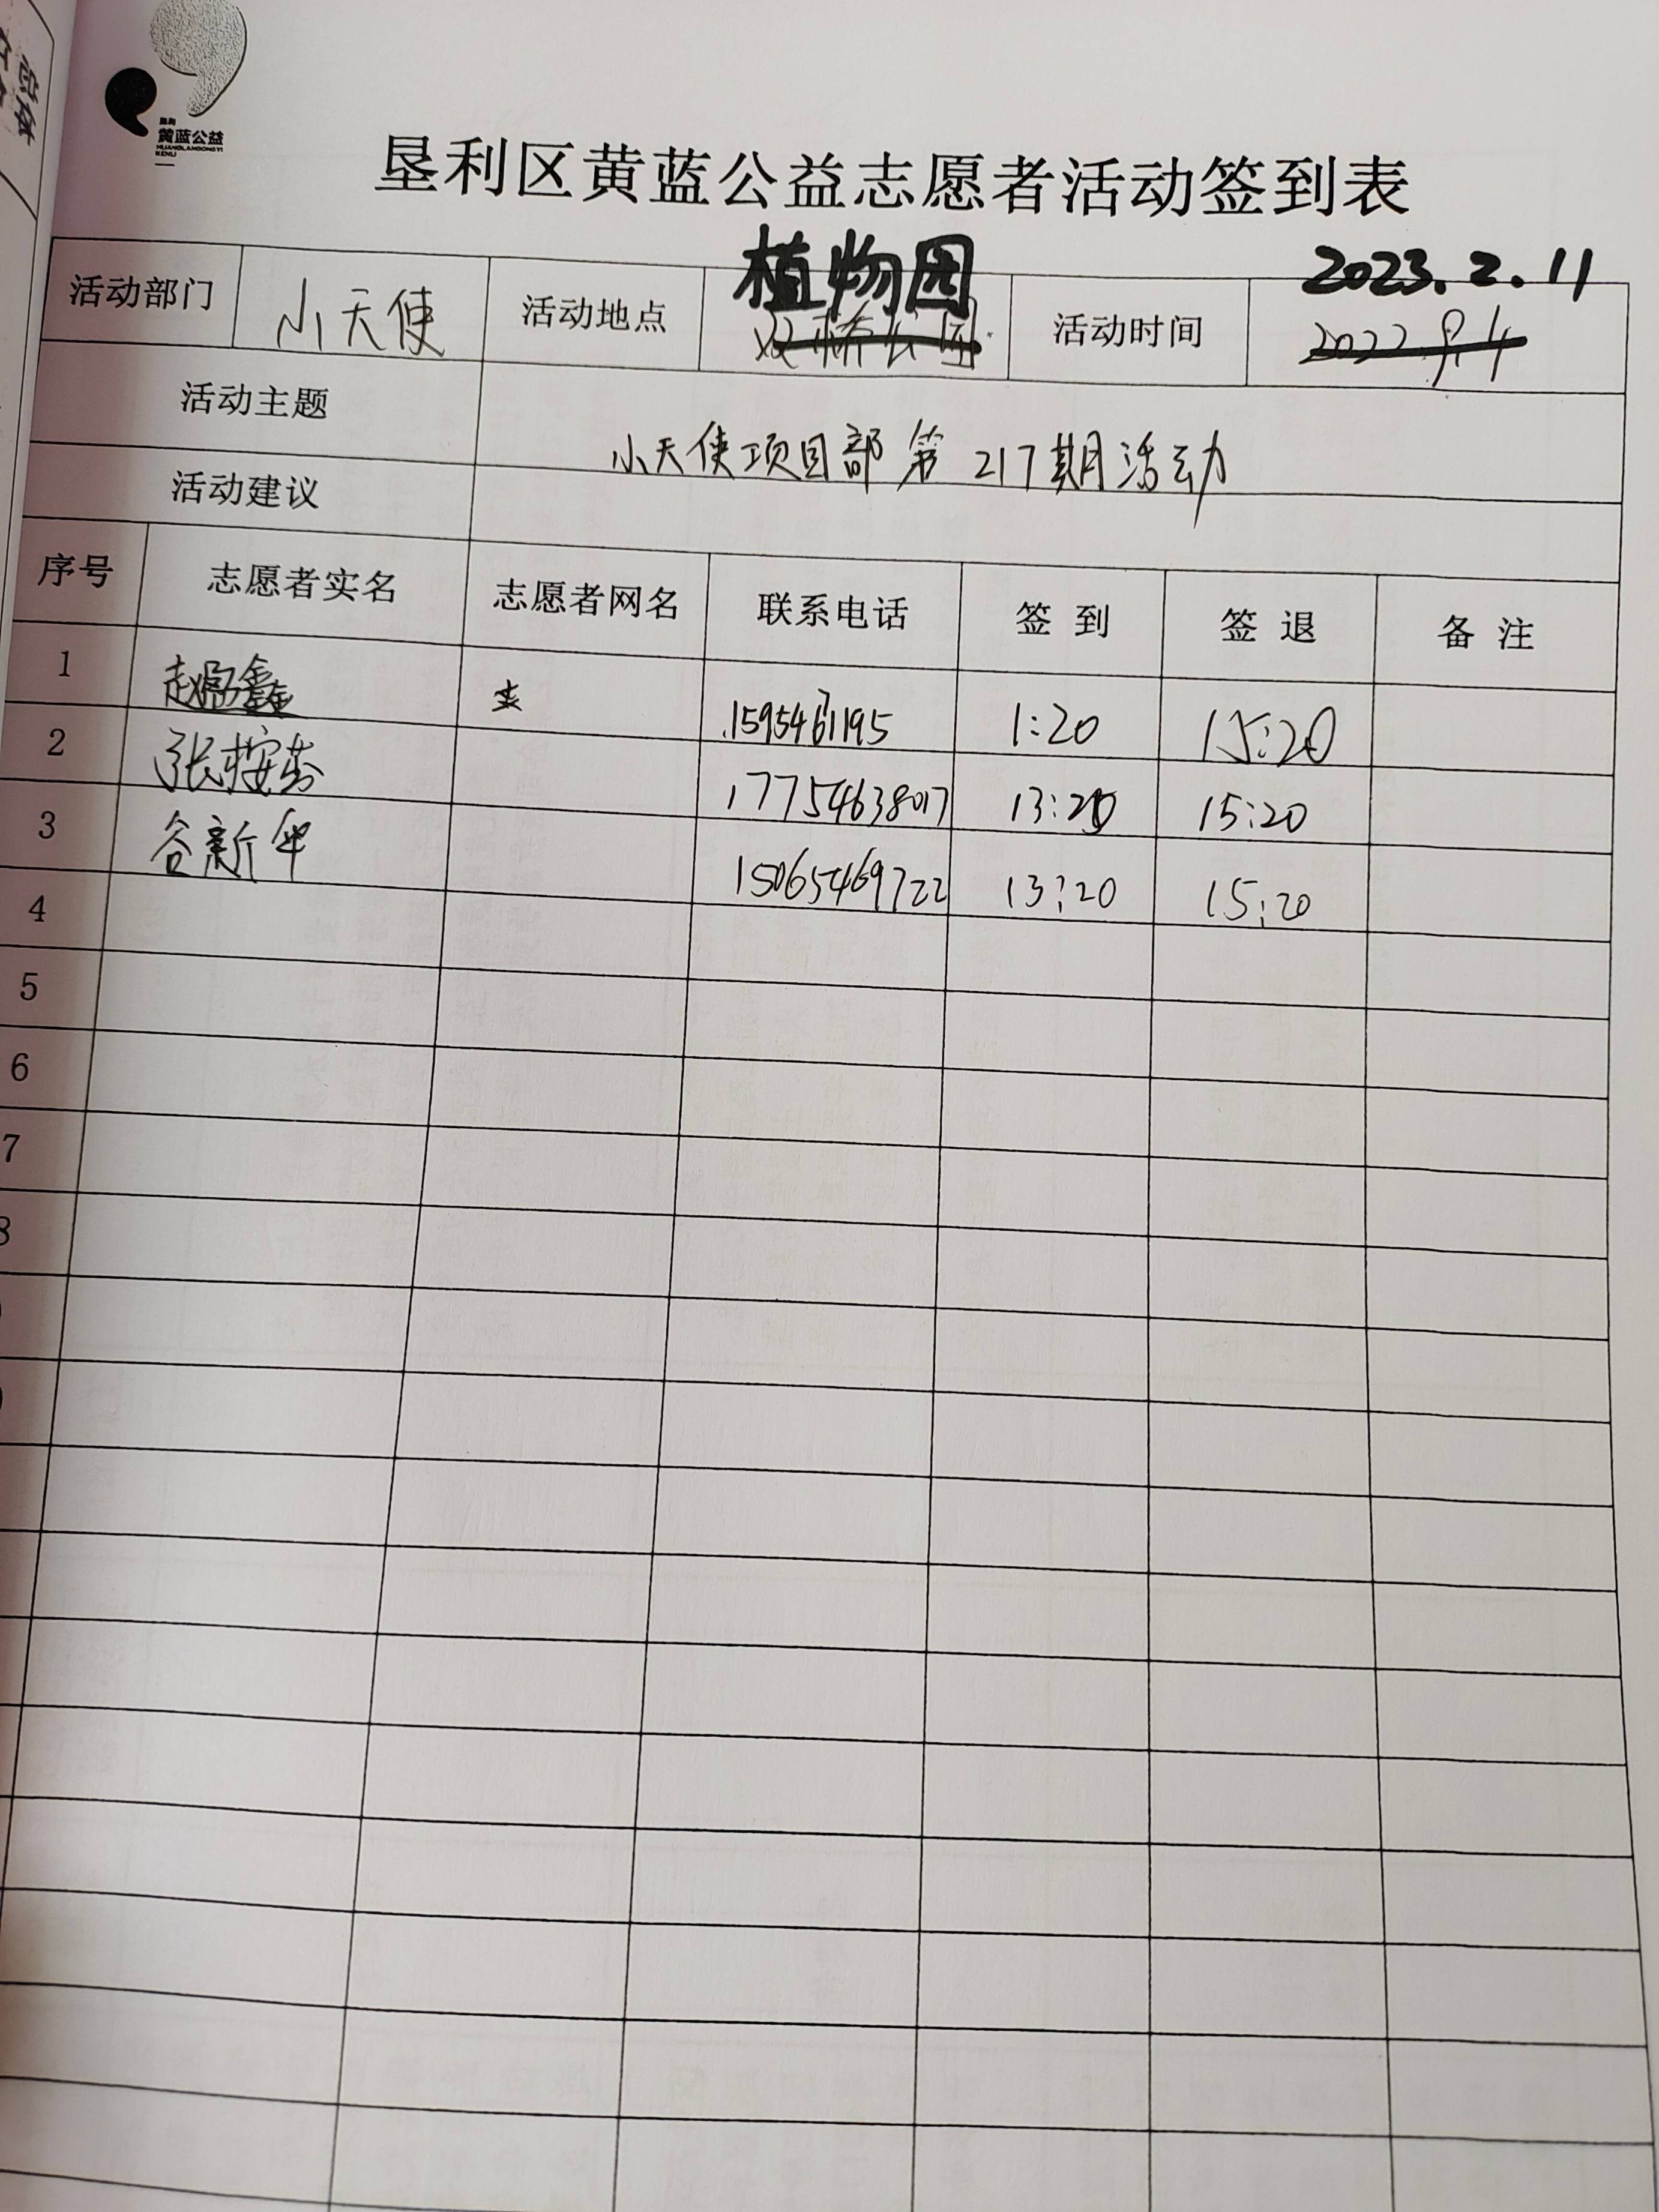 黄蓝公益
HUANGLANGONGYI
KENLI
垦利区黄蓝公益志愿者活动签到表
植物园 2023.2.11
活动部门 小天使 活动地点 双桥公园 活动时间 2022.9.4
活动主题
小天使项目部第217期活动
活动建议
序号 志愿者实名 志愿者网名 联系电话 签到 签退 备注
1 赵 鑫 1:20 15:20
2 张 芬 17754638017 13:20 15:20
3 谷新华 15065469722 13:20 15:20
4
5
6
7
8